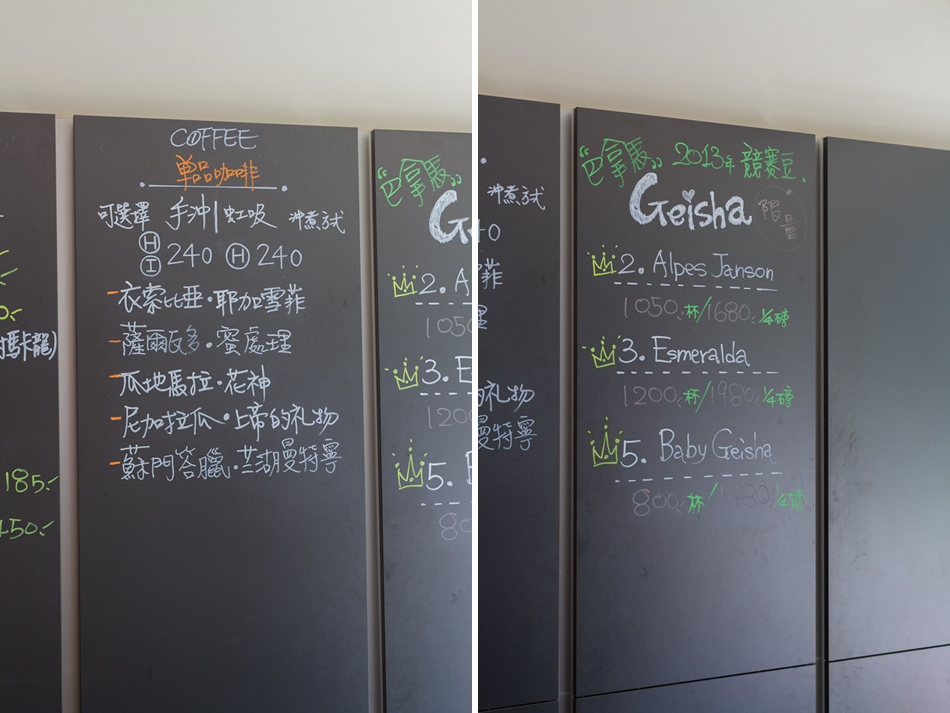 COFFEE
單品咖啡
可選擇 手沖|虹吸 沖煮方式
Ⓗ Ⓘ 240 Ⓗ 240
-衣索比亞·耶加雪菲
-薩爾瓦多·蜜處理
-瓜地馬拉·花神
-尼加拉瓜·上帝的礼物
-蘇門答臘·芒湖曼特寧
瑪卡龍)
185.-
450.-
“巴拿馬”
G
2. A
1050
3. E
1200
5. B
80
沖煮方式
40
菲
理
的礼物
曼特寧
“巴拿馬” 2013年 競賽豆.
Geisha 限量
2. Alpes Janson
1050.杯/1680.¼磅
3. Esmeralda
1200.杯/1980.¼磅
5. Baby Geisha
800.杯/1480.¼磅